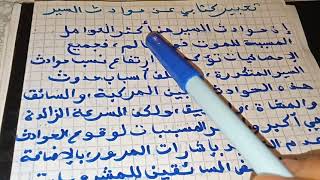 تعبير كتابي عن حوادث السير
إن حوادث السير من أكثر العوامل
المسببة للموت في العالم، فجميع
الإحصائيات تؤكد ارتفاع نسب حوادث
السير المتكررة، أسباب حدوث
هذه الحوادث بين المركبة، والسائق
والمشاة، ولكن السرعة الزائدة
هي أكبر المسببات لوقوع الحوادث
عدم بإشارات المرور بالإضافة
السائقين للمشروبات